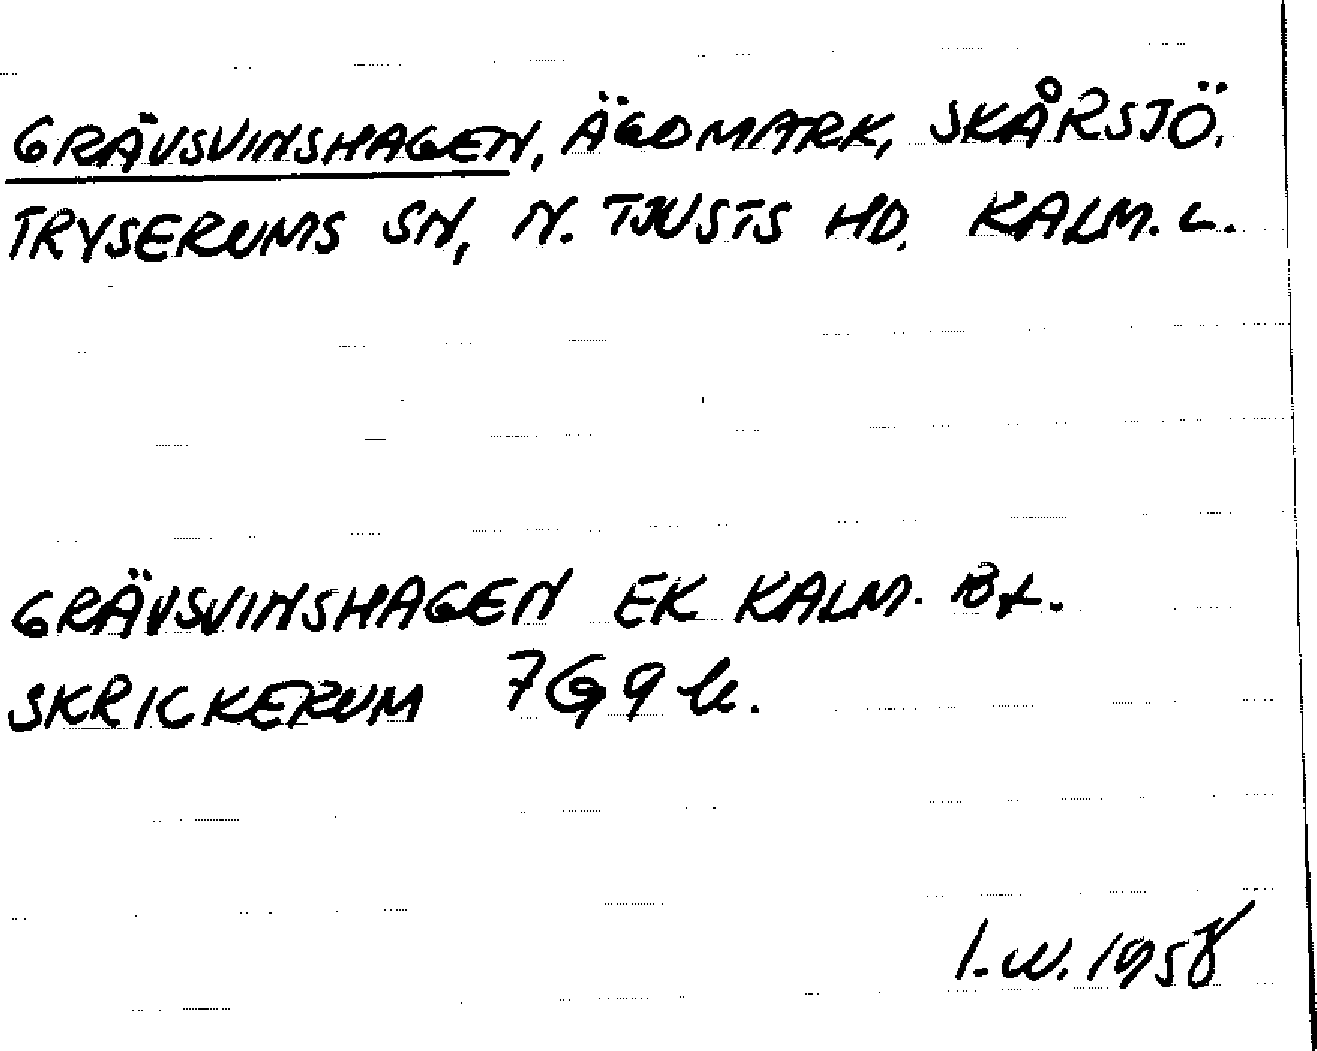 GRÄVSVINSHAGEN, ÄGOMARK, SKÅRSJÖ.
TRYSERUMS SN, N. TJUSTS HD. KALM. L.
GRÄVSVINSHAGEN EK KALM. Bl.
SKRICKERUM 7G9h.
I.W. 1958